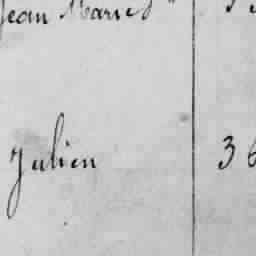 Jean Marie
Julien 36